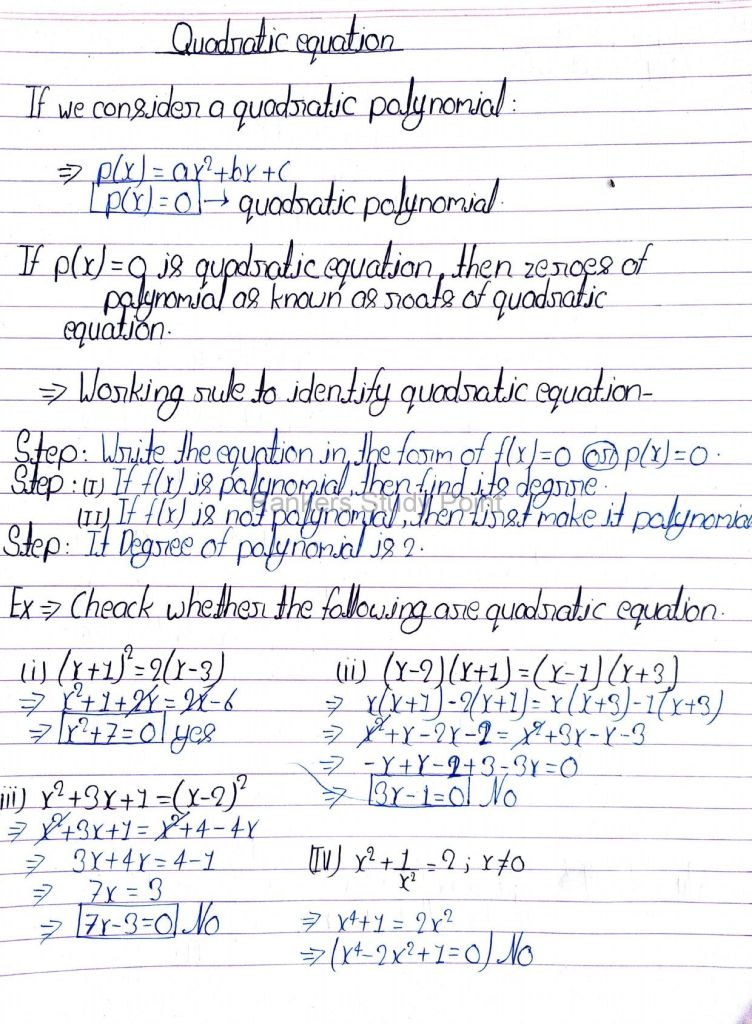 Quadratic equation
If we consider a quadratic polynomial:
⇒ p(x) = ax²+bx+c
p(x) = 0 → quadratic polynomial.
If p(x)=0 is quadratic equation, then zeroes of
polynomial as known as roots of quadratic
equation.
⇒ Working rule to identify quadratic equation-
Step: Write the equation in the form of f(x)=0 or p(x)=0.
Step: (I) If f(x) is polynomial, then find its degree.
(II) If f(x) is not polynomial, then first make it polynomial
Step: If Degree of polynomial is 2.
Rankers Study Point
Ex ⇒ Cheack whether the following are quadratic equation.
(i) (x+1)² = 2(x-3)
⇒ x²+1+2x = 2x-6
⇒ x²+7=0 yes
(ii) (x-2)(x+1) = (x-1)(x+3)
⇒ x(x+1)-2(x+1) = x(x+3)-1(x+3)
⇒ x²+x-2x-2 = x²+3x-x-3
⇒ -x+x-2+3-3x=0
⇒ 3x-1=0 No
iii) x²+3x+1 = (x-2)²
⇒ x²+3x+1 = x²+4-4x
⇒ 3x+4x = 4-1
⇒ 7x = 3
⇒ 7x-3=0 No
(IV) x²+1/x² = 2; x≠0
⇒ x⁴+1 = 2x²
⇒ (x⁴-2x²+1=0) No